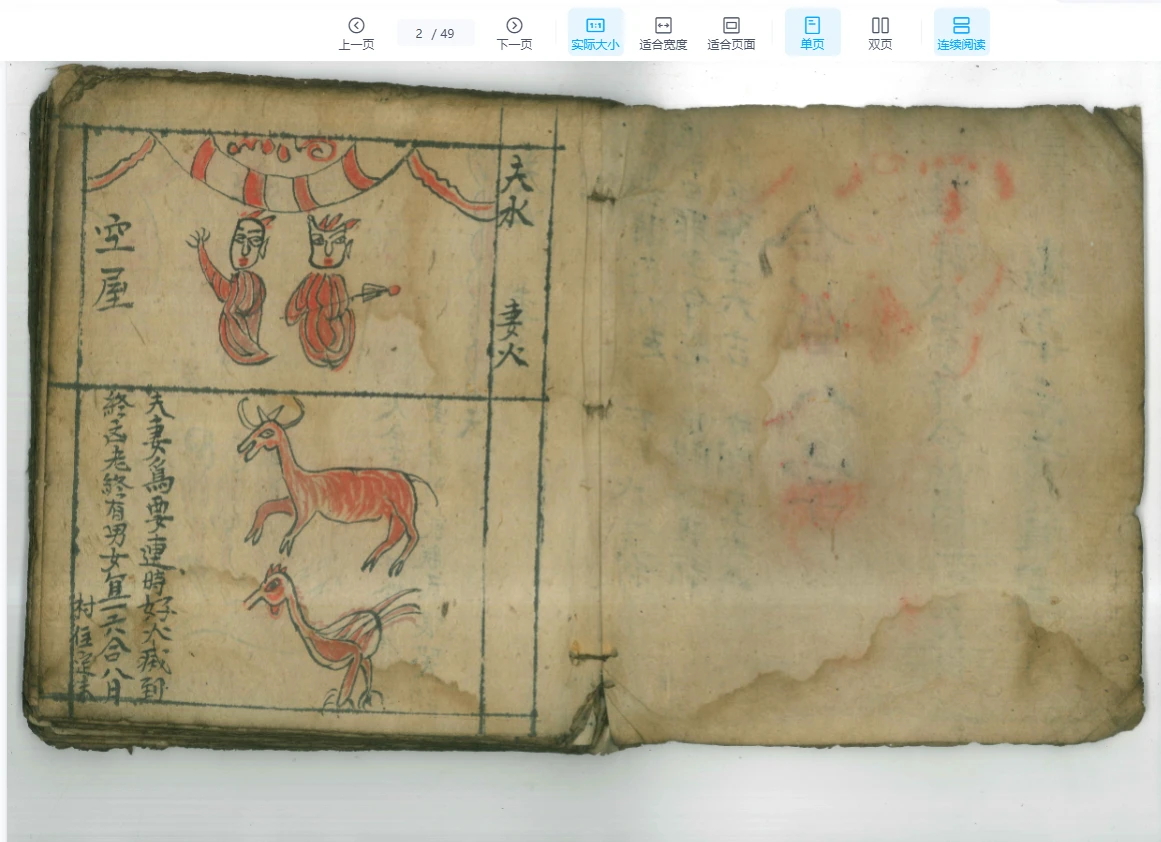 上一页
2 / 49
下一页
实际大小
适合宽度
适合页面
单页
双页
连续阅读
夫水
妻火
空屋
夫妻爲要連時好火 到
終凶老終有男女宜一六合八月
村住定